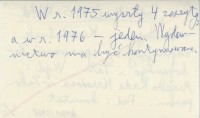 W r. 1975 wyszły 4 zeszyty
a w r. 1976 – jeden. Wydaw-
nictwo ma być kontynuowane.